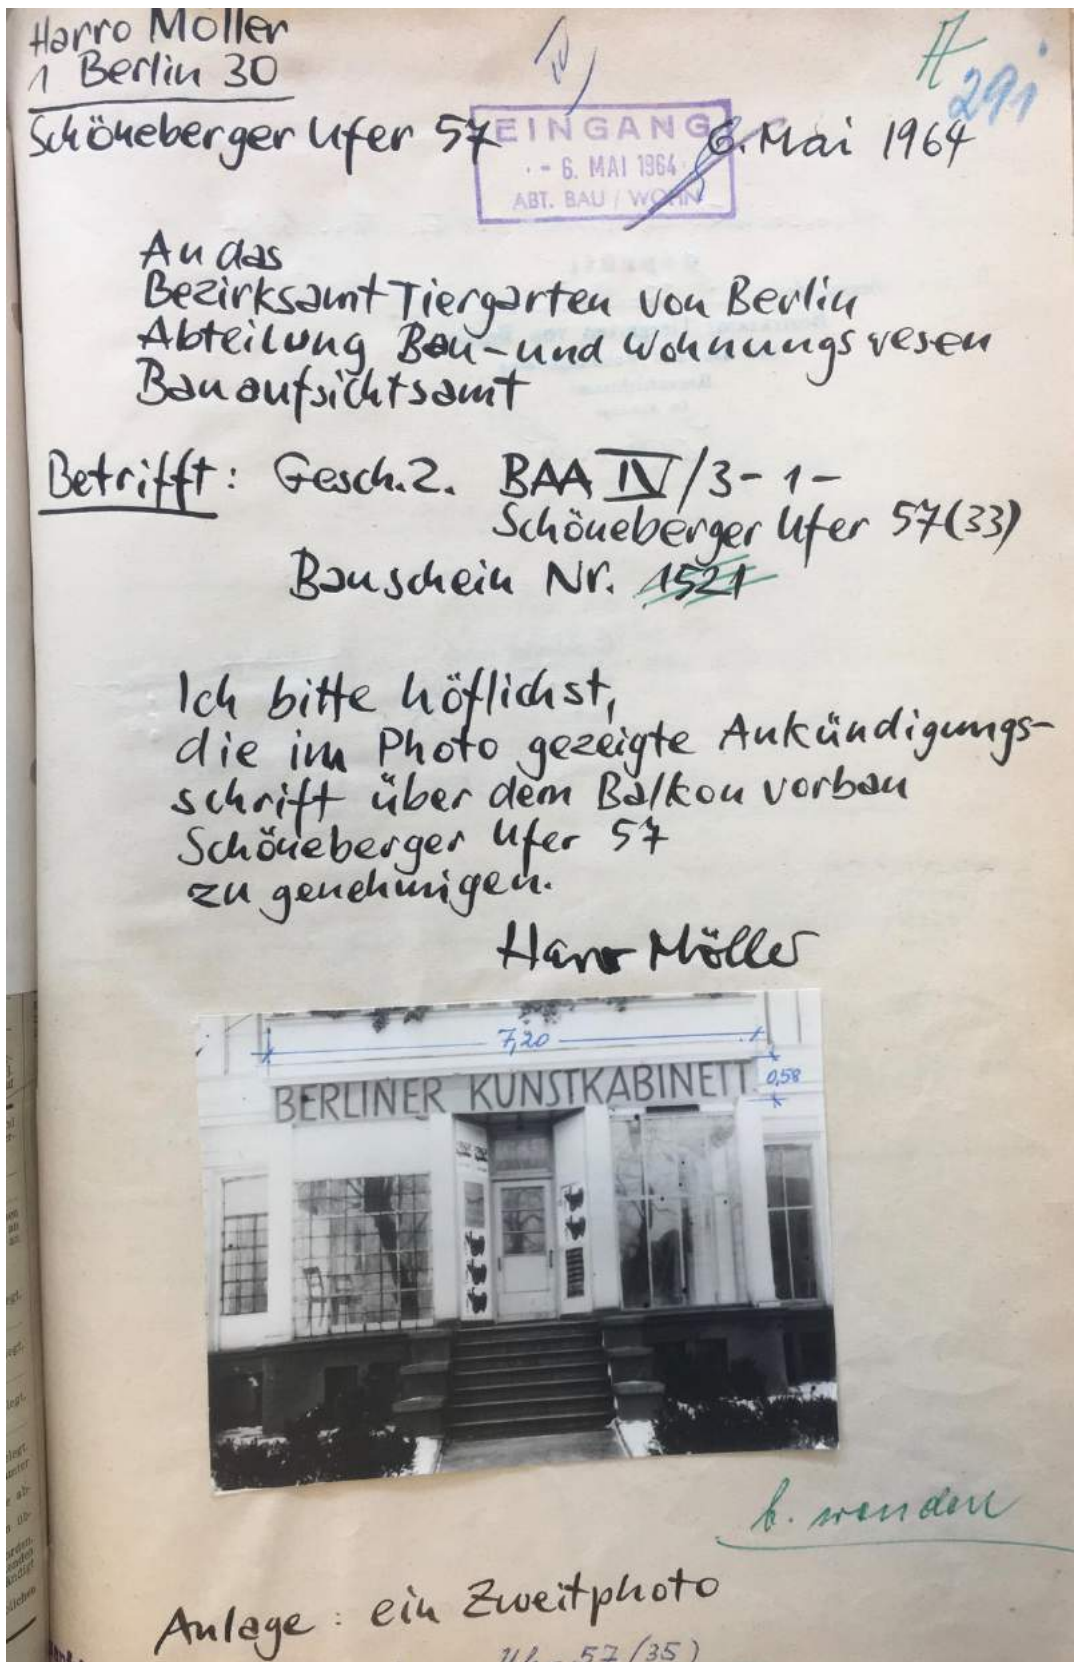 Harro Möller
1 Berlin 30
Schöneberger Ufer 57
6. Mai 1964
291
EINGANG
- 6. MAI 1964
ABT. BAU / WOHN
An das
Bezirksamt Tiergarten von Berlin
Abteilung Bau- und Wohnungswesen
Bauaufsichtsamt
Betrifft: Gesch.Z. BAA IV/3-1-
Schöneberger Ufer 57(33)
Bauschein Nr. 1521
Ich bitte höflichst,
die im Photo gezeigte Ankündigungs-
schrift über dem Balkonvorbau
Schöneberger Ufer 57
zu genehmigen.
Harro Möller
7,20
0,58
BERLINER KUNSTKABINETT
b. wenden
Anlage: ein Zweitphoto
57 (35)